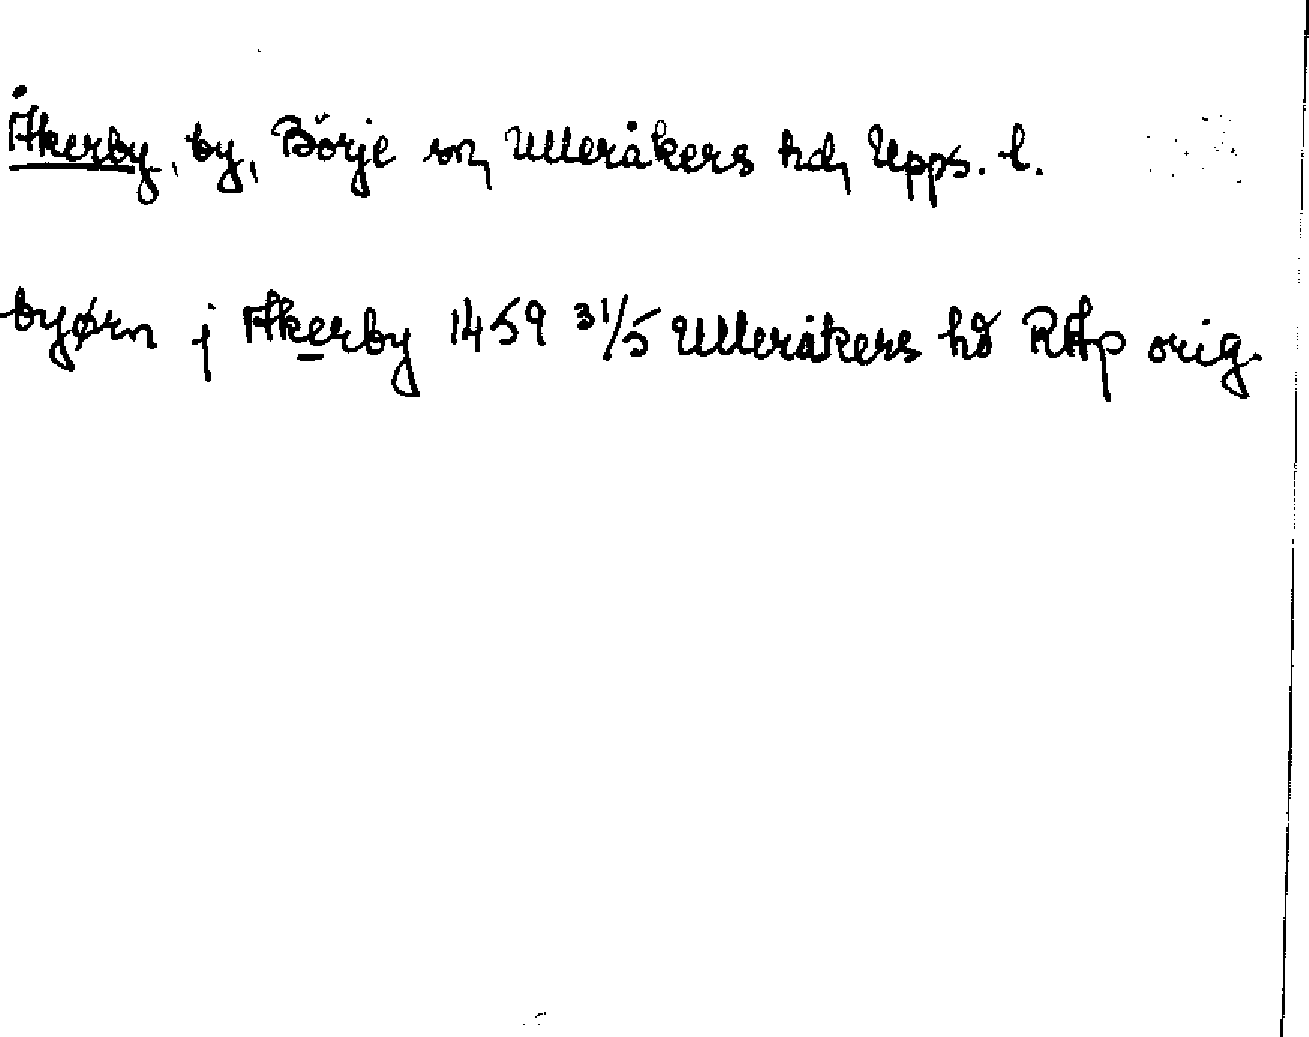 Åkerby, by, Börje sn, Ulleråkers hd, Upps. l.
byørn j Akerby 1459 31/5 Ulleråkers hd RAp orig.